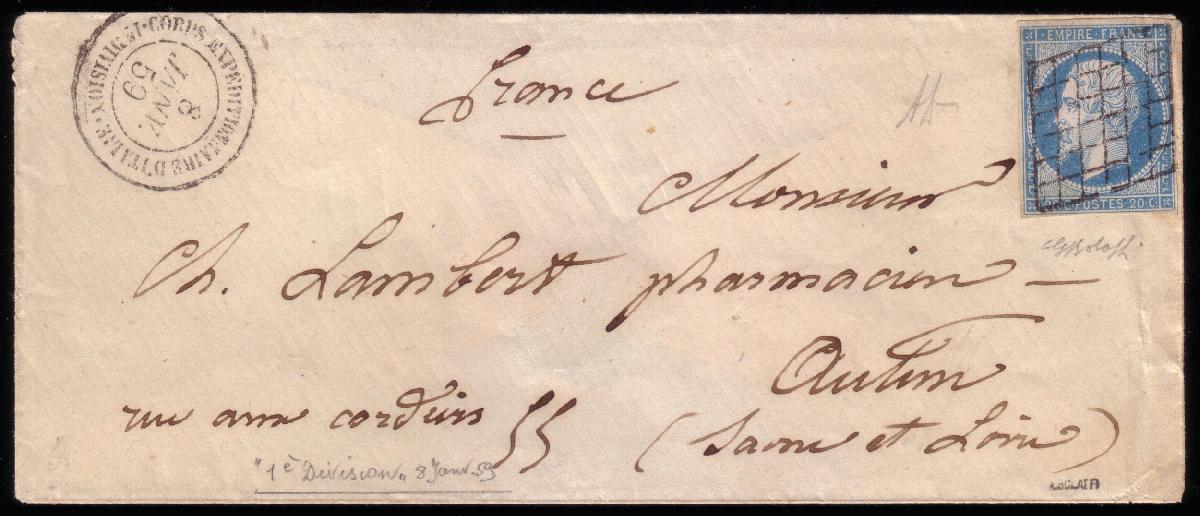 CORPS EXPEDITIONNAIRE D'ITALIE
8
JANV.
59
EMPIRE FRANC
POSTES 20 C
France
Monsieur
Ch. Lambert pharmacien —
Autun
rue aux cordiers 55
(Saone et Loire)
"1e Division" 8 Janv. 59